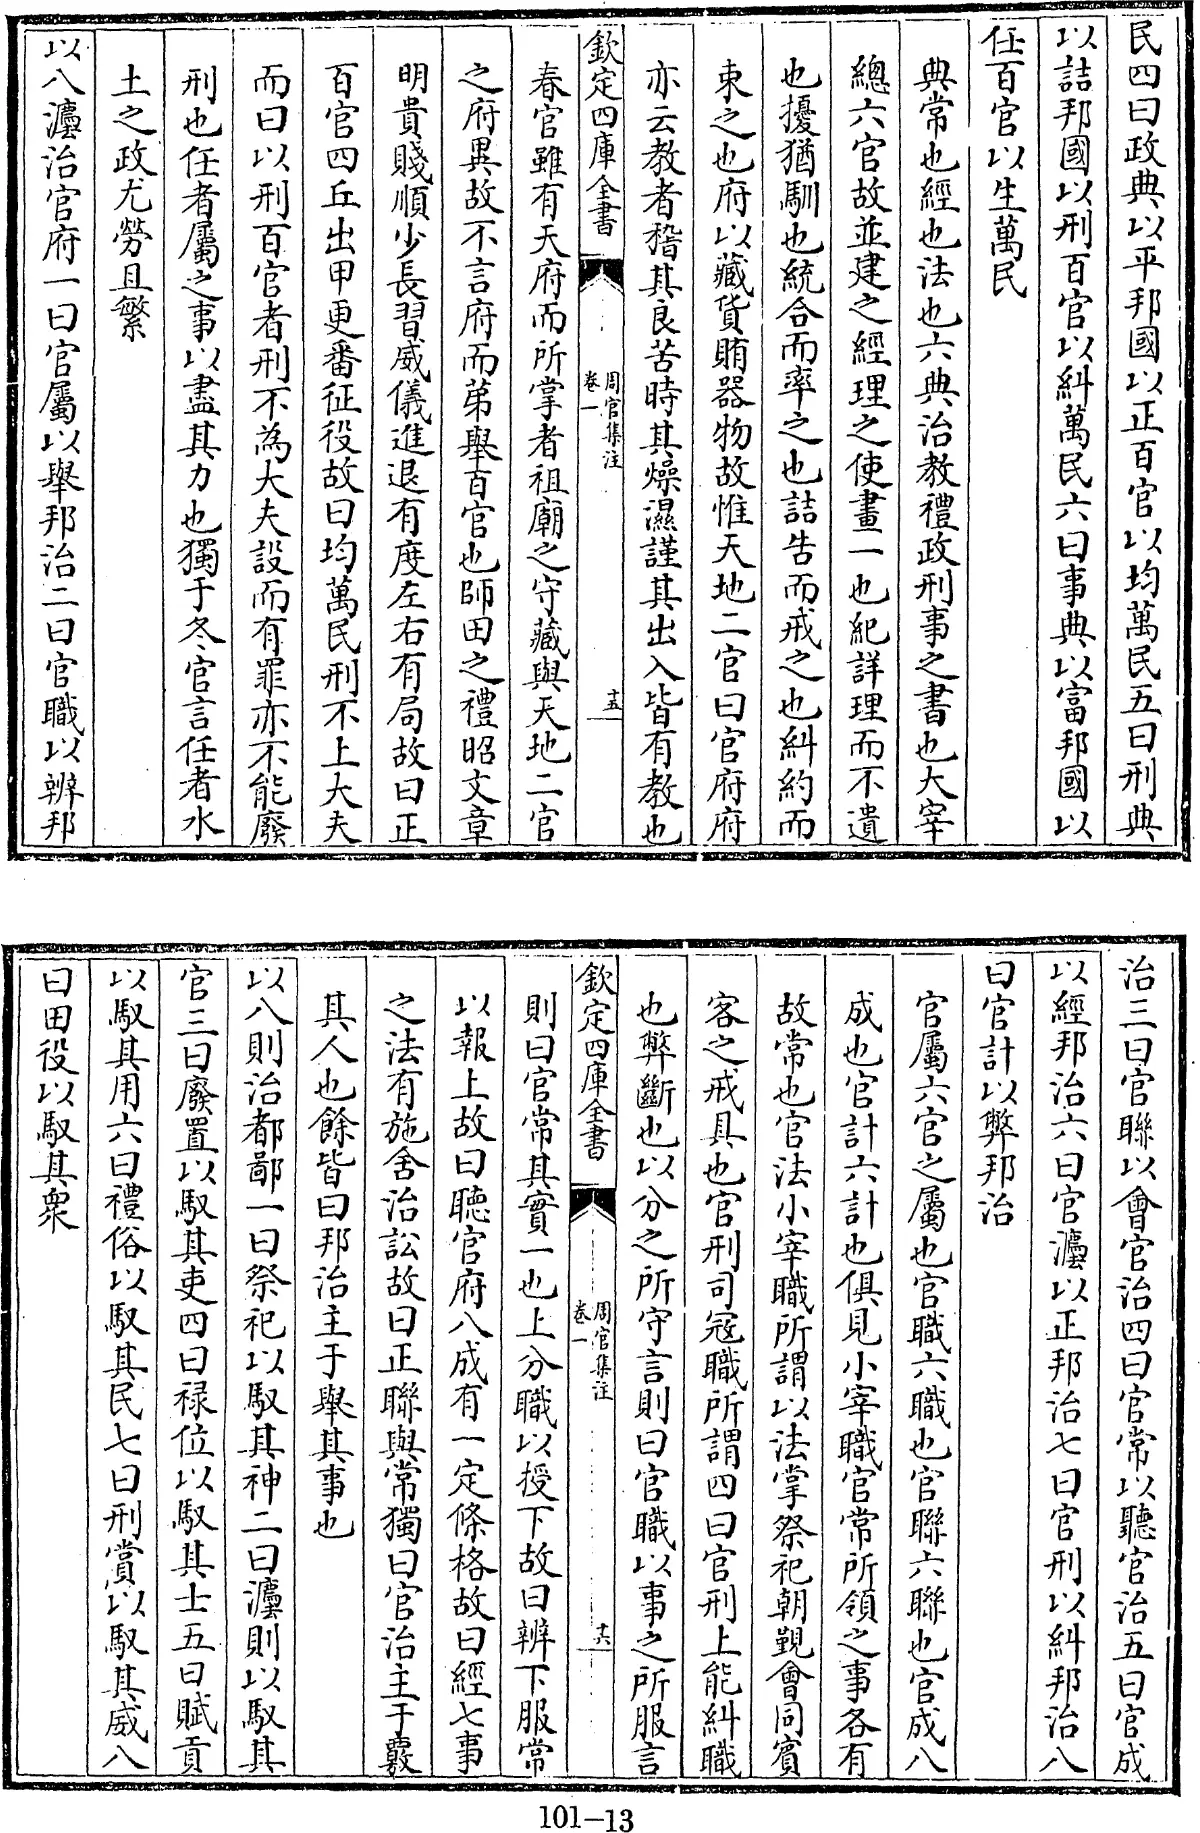 民四曰政典以平邦國以正百官以均萬民五曰刑典
以詰邦國以刑百官以糾萬民六曰事典以富邦國以
任百官以生萬民
典常也經也法也六典治教禮政刑事之書也大宰
總六官故並建之經理之使畫一也紀詳理而不遺
也擾猶馴也統合而率之也詰告而戒之也糾約而
束之也府以藏貨賄器物故惟天地二官曰官府府
亦云教者稽其良苦時其燥濕謹其出入皆有教也
欽定四庫全書
周官集注
卷一
十五
春官雖有天府而所掌者祖廟之守藏與天地二官
之府異故不言府而第舉百官也師田之禮昭文章
明貴賤順少長習威儀進退有度左右有局故曰正
百官四丘出甲更番征役故曰均萬民刑不上大夫
而曰以刑百官者刑不為大夫設而有罪亦不能廢
刑也任者屬之事以盡其力也獨于冬官言任者水
土之政尤勞且繁
以八灋治官府一曰官屬以舉邦治二曰官職以辨邦
治三曰官聯以會官治四曰官常以聽官治五曰官成
以經邦治六曰官灋以正邦治七曰官刑以糾邦治八
曰官計以弊邦治
官屬六官之屬也官職六職也官聯六聯也官成八
成也官計六計也俱見小宰職官常所領之事各有
故常也官法小宰職所謂以法掌祭祀朝覲會同賓
客之戒具也官刑司寇職所謂四曰官刑上能糾職
也弊斷也以分之所守言則曰官職以事之所服言
欽定四庫全書
周官集注
卷一
十六
則曰官常其實一也上分職以授下故曰辨下服常
以報上故曰聽官府八成有一定條格故曰經七事
之法有施舍治訟故曰正聯與常獨曰官治主于覈
其人也餘皆曰邦治主于舉其事也
以八則治都鄙一曰祭祀以馭其神二曰灋則以馭其
官三曰廢置以馭其吏四曰禄位以馭其士五曰賦貢
以馭其用六曰禮俗以馭其民七曰刑賞以馭其威八
曰田役以馭其衆
101-13